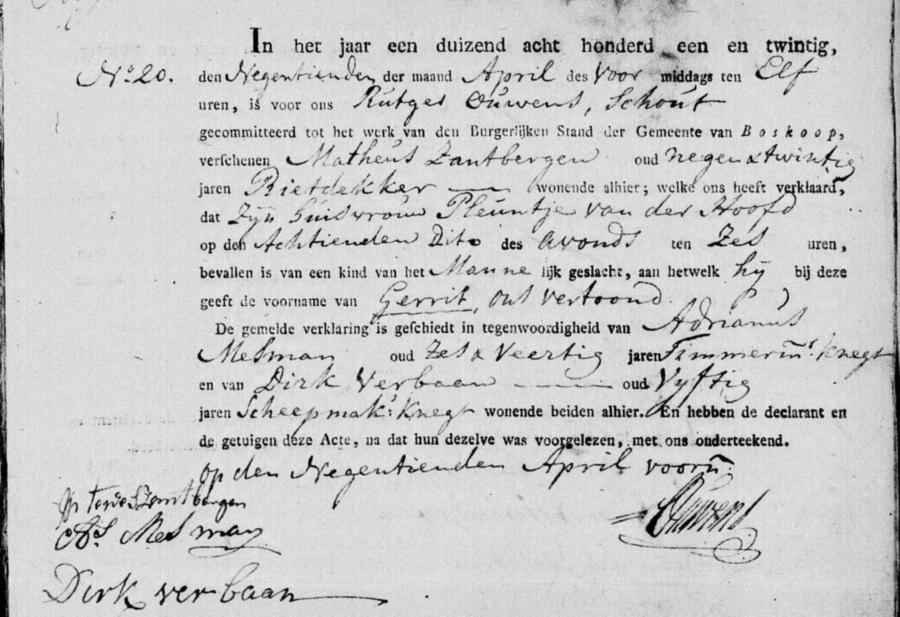 In het jaar een duizend acht honderd een en twintig,
No. 20. den Negentienden der maand April des Voor middags ten Elf
uren, is voor ons Rutger Ouwens, Schout
gecommitteerd tot het werk van den Burgerlijken Stand der Gemeente van Boskoop,
verschenen Matheus Zantbergen oud negen & twintig
jaren Rietdekker — wonende alhier; welke ons heeft verklaard,
dat Zijn Huisvrouw Pleuntje van der Hoofd
op den Achtienden Dito des avonds ten Zes uren,
bevallen is van een kind van het Manne lijk geslacht, aan hetwelk hij bij deze
geeft de voorname van Gerrit, ons vertoond.
De gemelde verklaring is geschiedt in tegenwoordigheid van Adrianus
Mesman oud Zes & Veertig jaren Timmerms. knegt
en van Dirk Verbaan — oud Vyftig
jaren Scheepmaks. Knegt wonende beiden alhier. En hebben de declarant en
de getuigen deze Acte, na dat hun dezelve was voorgelezen, met ons onderteekend.
op den Negentienden April voorn.
Zant bergen
As Mesman
Ouwens
Dirk verbaan